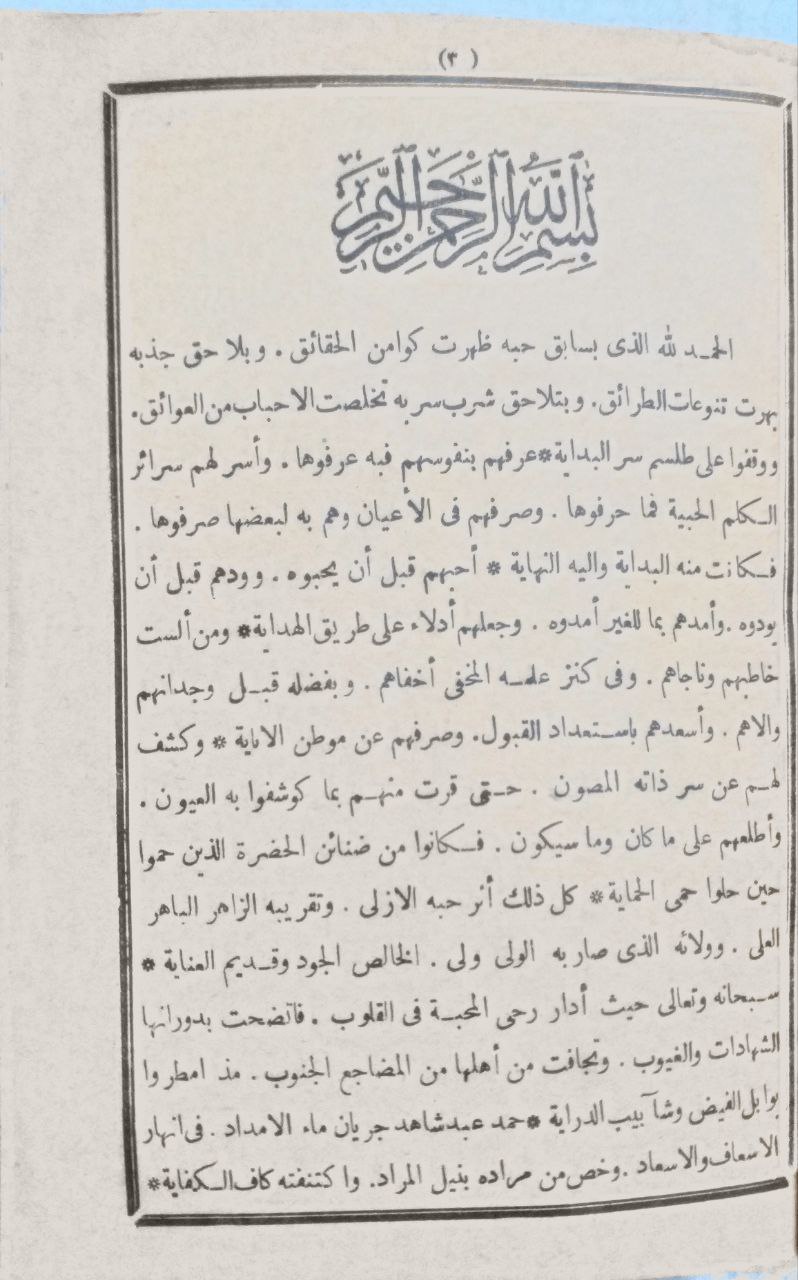 (٣)
بسم الله الرحمن الرحيم
الحمـد لله الذى بسابق حبه ظهرت كوامن الحقائق . وبلا حق جذبه
بهرت تنوعات الطرائق . وبتلاحق شرب سر به تخلصت الاحباب من العوائق .
ووقفوا على طلسم سر البداية * عرفهم بنفوسهم فبه عرفوها . وأسر لهم سرائر
الـكلم الحبية فما حرفوها . وصرفهم فى الأعيان وهم به لبعضها صرفوها .
فـكانت منه البداية واليه النهاية * أحبهم قبل أن يحبوه . وودهم قبل أن
يودوه . وأمدهم بما للغير أمدوه . وجعلهم أدلاء على طريق الهداية * ومن ألست
خاطبهم وناجاهم . وفى كنز علمـه المخفى أخفاهم . وبفضله قبـل وجدانهم
والاهم . وأسعدهم باسـتعداد القبول . وصرفهم عن موطن الاباية * وكشف
لهـم عن سر ذاته المصون . حـتى قرت منهـم بما كوشفوا به العيون .
وأطلعهم على ما كان وما سيكون . فـكانوا من ضنائن الحضرة الذين حموا
حين حلوا حمى الحماية * كل ذلك أثر حبه الازلى . وتقريبه الزاهر الباهر
العلى . وولائه الذى صار به الولى ولى . الخالص الجود وقـديم العناية *
سـبحانه وتعالى حيث أدار رحى المحبـة فى القلوب . فاتضحت بدورانها
الشهادات والغيوب . وتجافت من أهلها من المضاجع الجنوب . مذ امطروا
بوابل الفيض وشآبيب الدراية * حمد عبد شاهد جريان ماء الامداد . فى انهار
الاسعاف والاسعاد . وخص من مراده بنيل المراد . واكتنفته كاف الـكفاية *